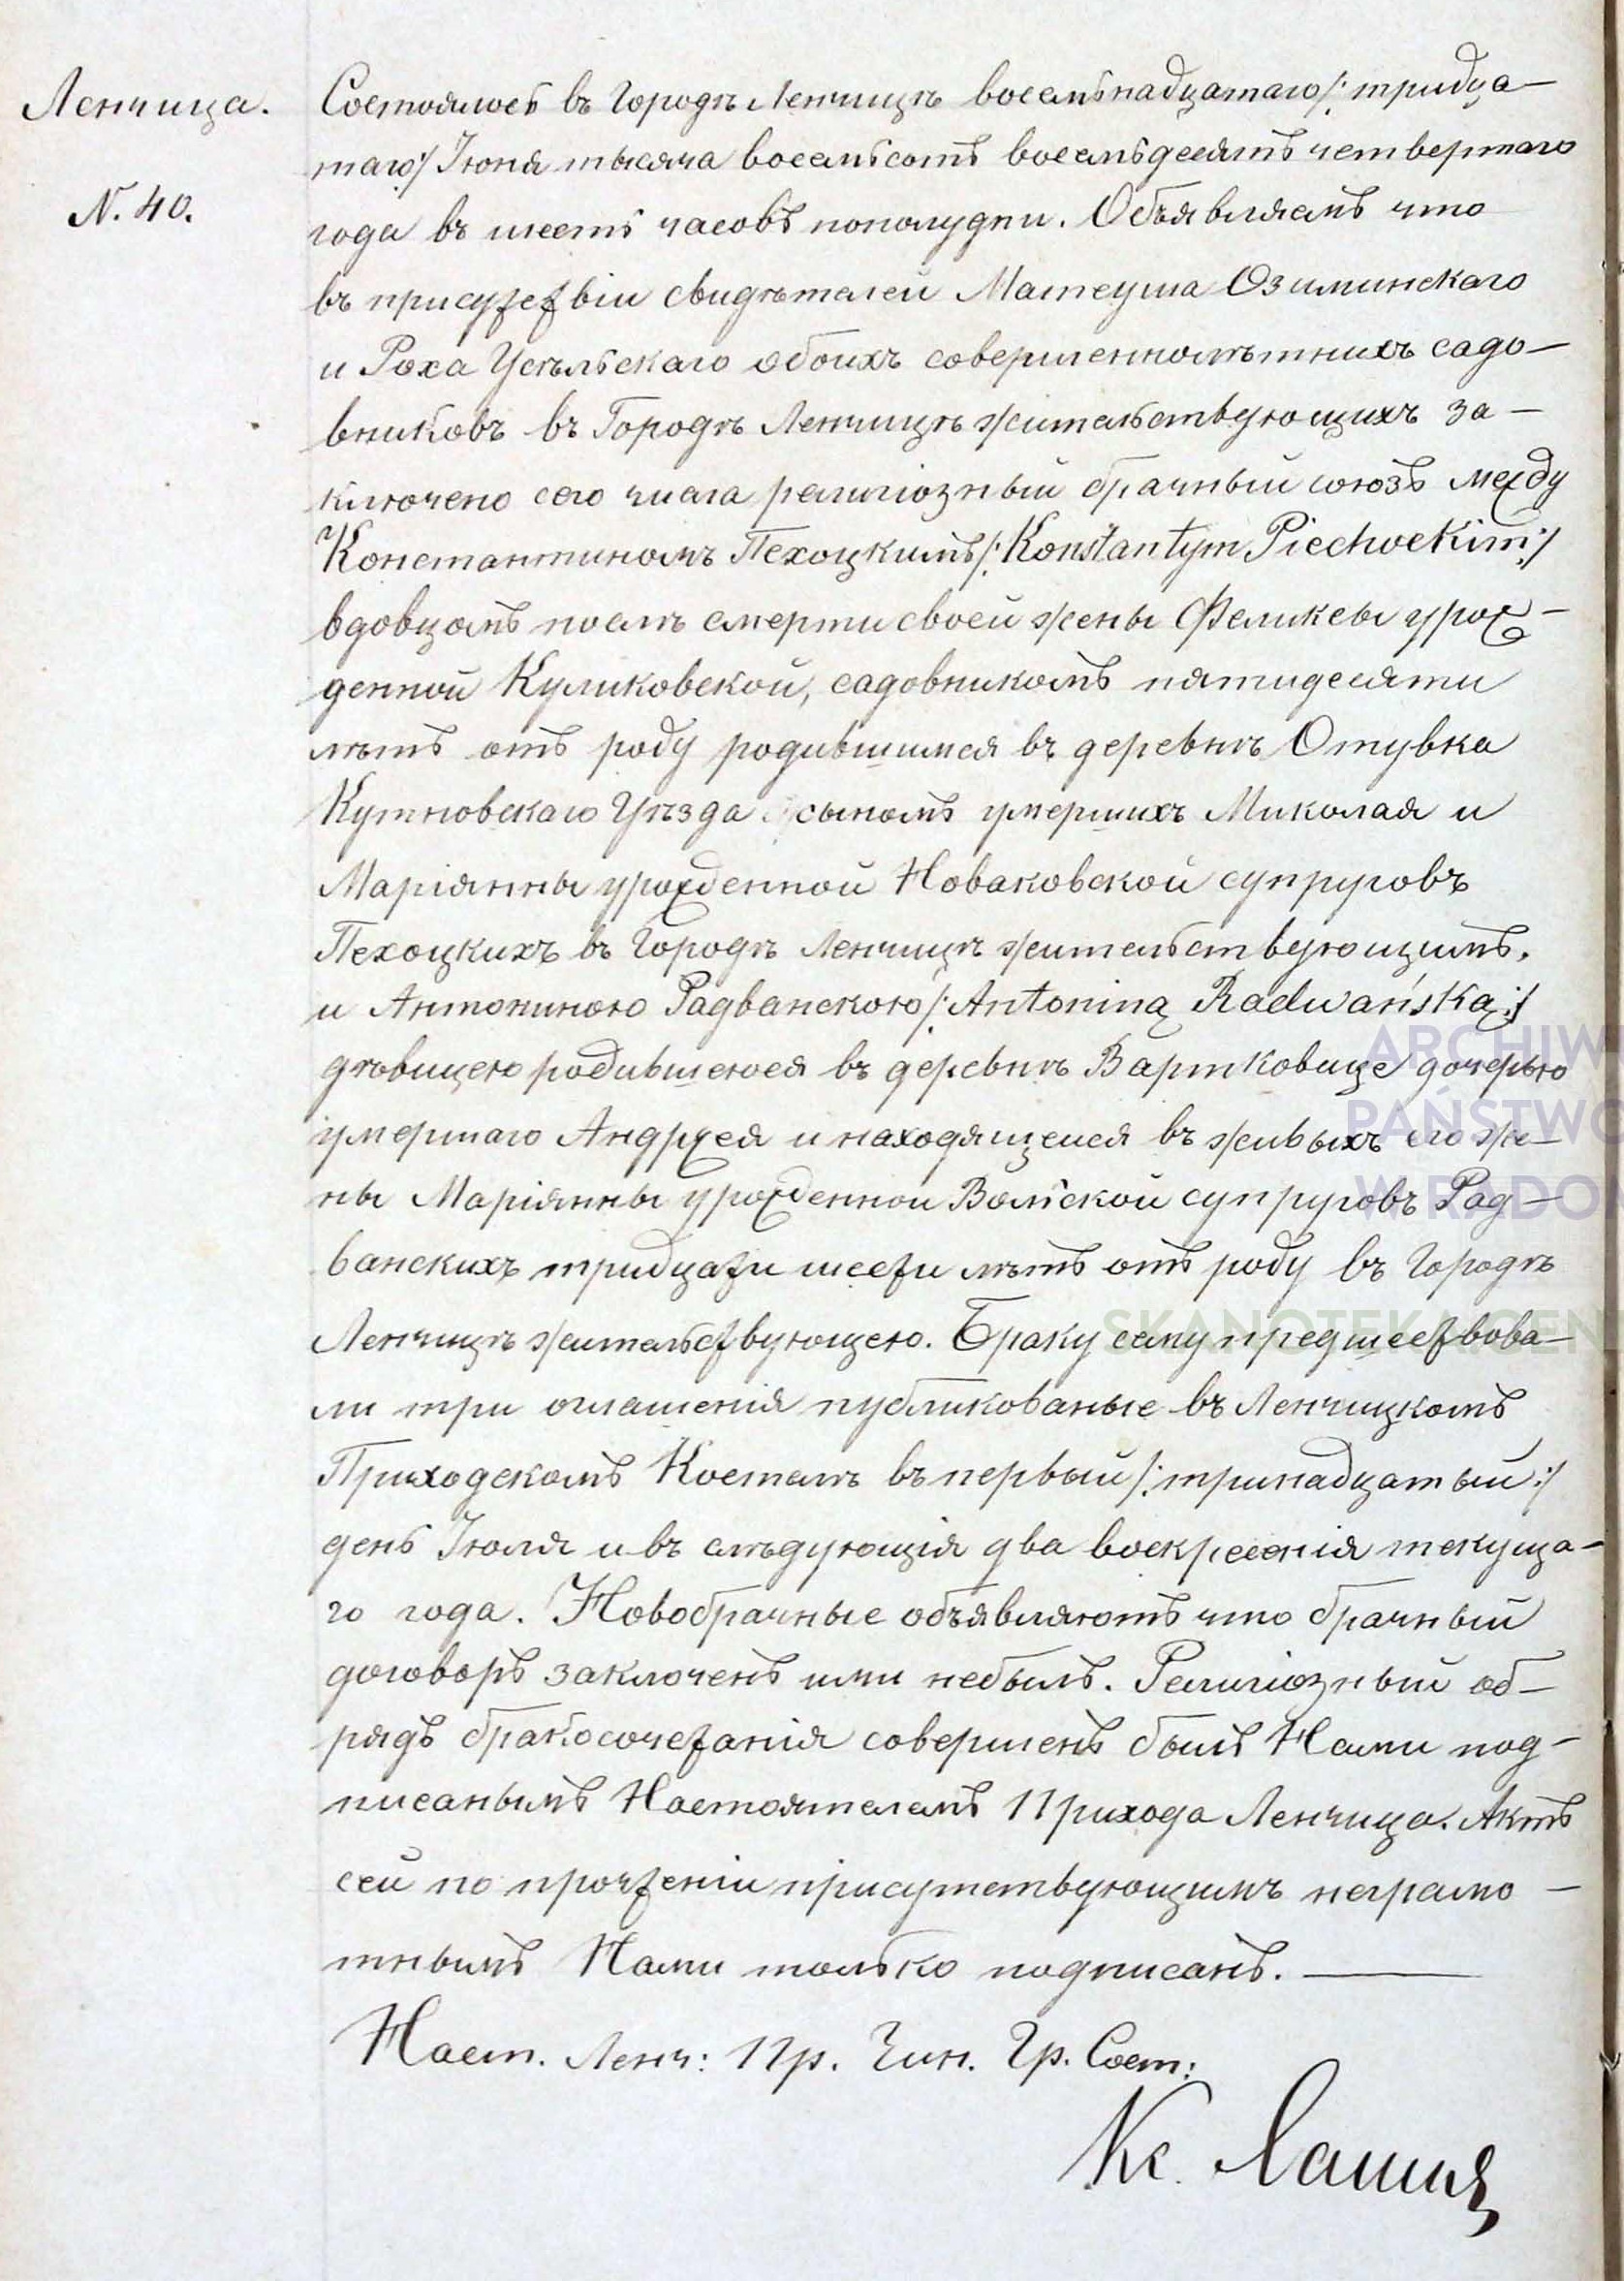 Ленчица.
N. 40.
Состоялось въ Городѣ Ленчицѣ восемьнадцатаго /: тридца-
таго :/ Іюня тысяча восемьсотъ восемьдесятъ четвертаго
года въ шесть часовъ пополудни. Объявляемъ что
въ присутствіи свидѣтелей Матеуша Озиминскаго
и Роха обоихъ совершеннолѣтнихъ садо-
вниковъ въ Городѣ Ленчицѣ жительствующихъ за-
ключено сего числа религіозный брачный союзъ между
Константиномъ Пехоцкимъ /: Konstantym Piechockim :/
вдовцомъ послѣ смерти своей жены Феликсы урож-
денной Куликовской, садовникомъ пятидесяти
лѣтъ отъ роду родившимся въ деревнѣ Отувка
Кутновскаго Уѣзда сыномъ умершихъ Миколая и
Маріянны урожденной Новаковской супруговъ
Пехоцкихъ въ Городѣ Ленчицѣ жительствующимъ.
и Антониною Радванскою /: Antoniną Radwańską :/
дѣвицею родившеюся въ деревнѣ Вартковице дочерью
умершаго Андржея и находящейся въ живыхъ его же-
ны Маріянны урожденной Вольской супруговъ Рад-
ванскихъ тридцати шести лѣтъ отъ роду въ Городѣ
Ленчицѣ жительствующею. Браку сему предшествова-
ли три оглашенія публикованые въ Ленчицкомъ
Приходскомъ Костелѣ въ первый /: тринадцатый :/
день Іюля и въ слѣдующія два воскресенія текуща-
го года. Новобрачные объявляютъ что брачный
договоръ заключенъ ими небылъ. Религіозный об-
рядъ бракосочетанія совершенъ былъ Нами под-
писанымъ Настоятелемъ Прихода Ленчица. Актъ
сей по прочтеніи присутствующимъ неграмо-
тнымъ Нами только подписанъ.
Наст. Ленч: Пр. Чин. Гр. Сост:
Кс.
ARCHIW
PAŃSTWO
W RADOM
SKANOTEKA.GEN